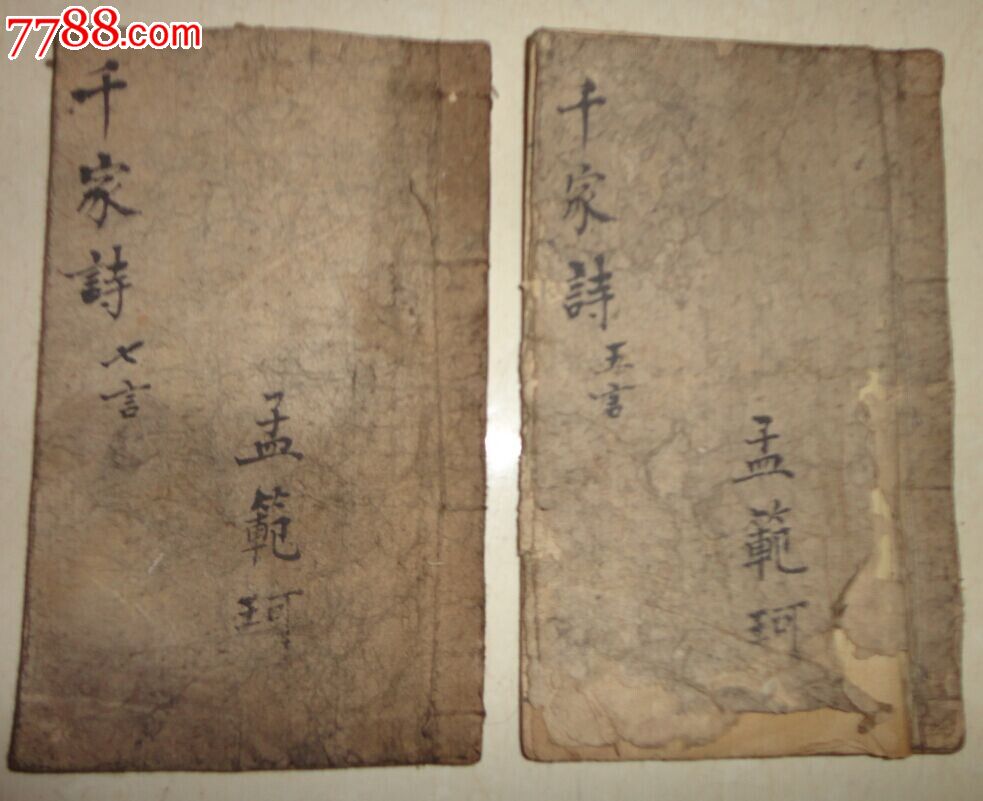 7788.com
千家詩
七言
孟範珂
千家詩
五言
孟範珂